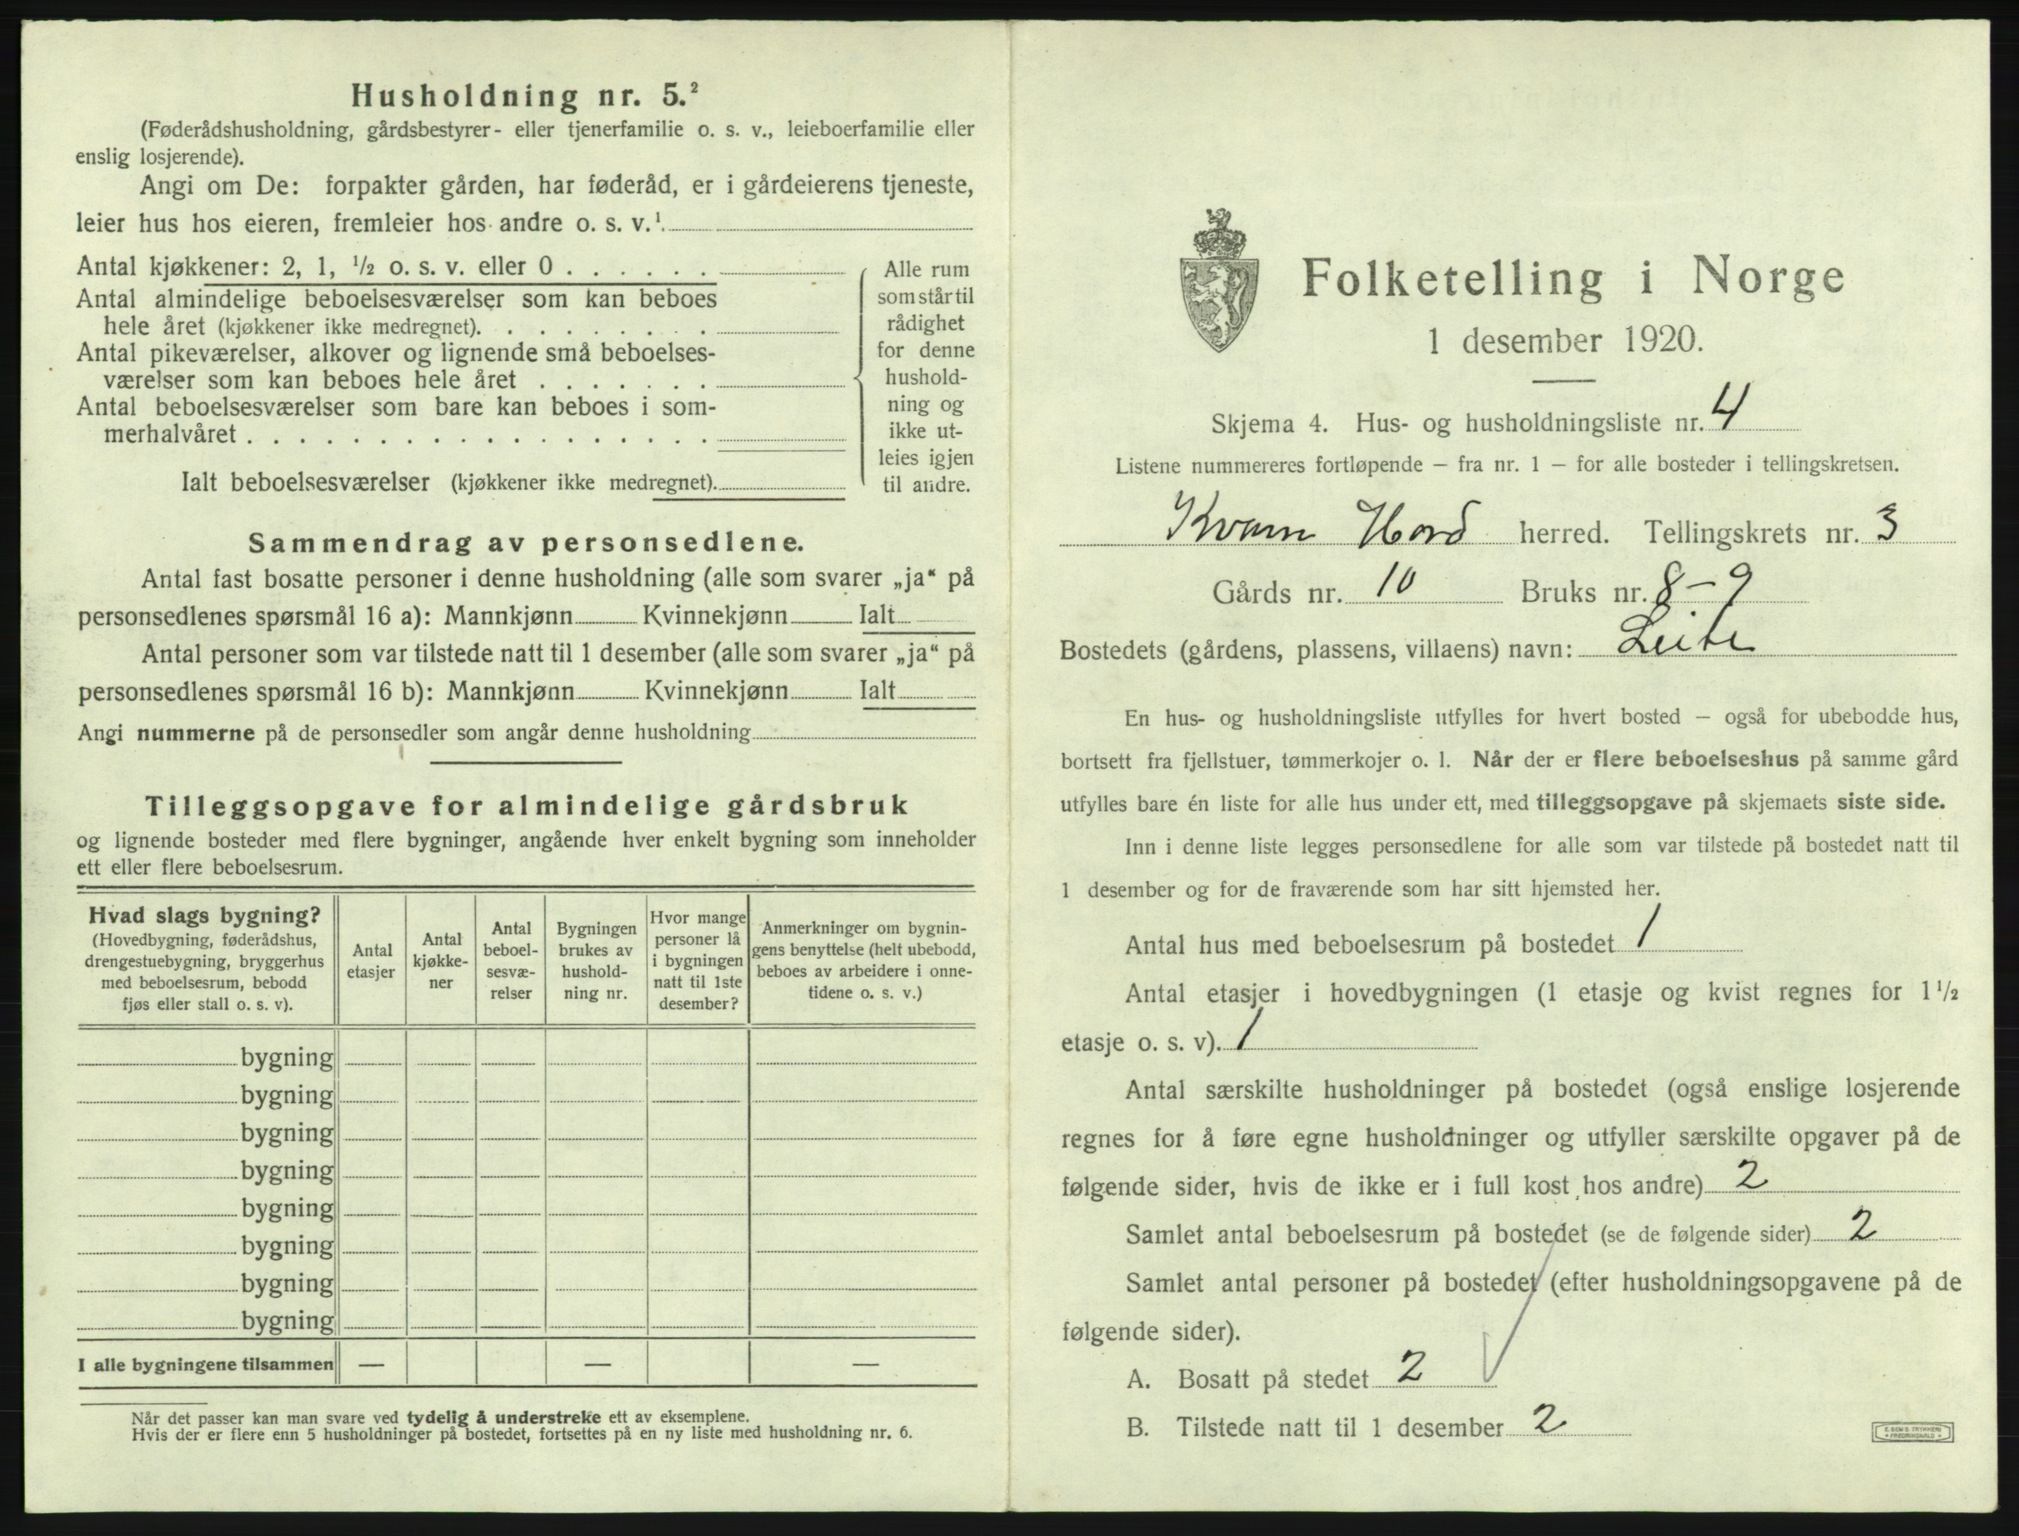 Husholdning nr. 5.²
(Føderådshusholdning, gårdsbestyrer- eller tjenerfamilie o. s. v., leieboerfamilie eller
enslig losjerende).
Angi om De: forpakter gården, har føderåd, er i gårdeierens tjeneste,
leier hus hos eieren, fremleier hos andre o. s. v.¹
Antal kjøkkener: 2, 1, ½ o. s. v. eller 0 . . . . . .
Antal almindelige beboelsesværelser som kan beboes
hele året (kjøkkener ikke medregnet). . . . . . . . .
Antal pikeværelser, alkover og lignende små beboelses-
værelser som kan beboes hele året . . . . . . .
Antal beboelsesværelser som bare kan beboes i som-
merhalvåret . . . . . . . . . . . . . . . . . .
Ialt beboelsesværelser (kjøkkener ikke medregnet).
Alle rum
som står til
rådighet
for denne
hushold-
ning og
ikke ut-
leies igjen
til andre.
Sammendrag av personsedlene.
Antal fast bosatte personer i denne husholdning (alle som svarer „ja“ på
personsedlenes spørsmål 16 a): Mannkjønn Kvinnekjønn Ialt
Antal personer som var tilstede natt til 1 desember (alle som svarer „ja“ på
personsedlenes spørsmål 16 b): Mannkjønn Kvinnekjønn Ialt
Angi nummerne på de personsedler som angår denne husholdning
Tilleggsopgave for almindelige gårdsbruk
og lignende bosteder med flere bygninger, angående hver enkelt bygning som inneholder
ett eller flere beboelsesrum.
Hvad slags bygning?
(Hovedbygning, føderådshus,
drengestuebygning, bryggerhus
med beboelsesrum, bebodd
fjøs eller stall o. s. v).
Antal
etasjer
Antal
kjøkke-
ner
Antal
beboel-
sesvæ-
relser
Bygningen
brukes av
hushold-
ning nr.
Hvor mange
personer lå
i bygningen
natt til 1ste
desember?
Anmerkninger om bygnin-
gens benyttelse (helt ubebodd,
beboes av arbeidere i onne-
tidene o. s. v.)
bygning
bygning
bygning
bygning
bygning
bygning
bygning
bygning
I alle bygningene tilsammen — — —
Når det passer kan man svare ved tydelig å understreke ett av eksemplene.
Hvis der er flere enn 5 husholdninger på bostedet, fortsettes på en ny liste med husholdning nr. 6.
Folketelling i Norge
1 desember 1920.
Skjema 4. Hus- og husholdningsliste nr. 4
Listene nummereres fortløpende – fra nr. 1 – for alle bosteder i tellingskretsen.
Kvam Hord herred. Tellingskrets nr. 3
Gårds nr. 10 Bruks nr. 8-9
Bostedets (gårdens, plassens, villaens) navn: Leite
En hus- og husholdningsliste utfylles for hvert bosted – også for ubebodde hus,
bortsett fra fjellstuer, tømmerkojer o. l. Når der er flere beboelseshus på samme gård
utfylles bare én liste for alle hus under ett, med tilleggsopgave på skjemaets siste side.
Inn i denne liste legges personsedlene for alle som var tilstede på bostedet natt til
1 desember og for de fraværende som har sitt hjemsted her.
Antal hus med beboelsesrum på bostedet 1
Antal etasjer i hovedbygningen (1 etasje og kvist regnes for 1½
etasje o. s. v). 1
Antal særskilte husholdninger på bostedet (også enslige losjerende
regnes for å føre egne husholdninger og utfyller særskilte opgaver på de
følgende sider, hvis de ikke er i full kost hos andre) 2
Samlet antal beboelsesrum på bostedet (se de følgende sider) 2
Samlet antal personer på bostedet (efter husholdningsopgavene på de
følgende sider).
A. Bosatt på stedet 2
B. Tilstede natt til 1 desember 2